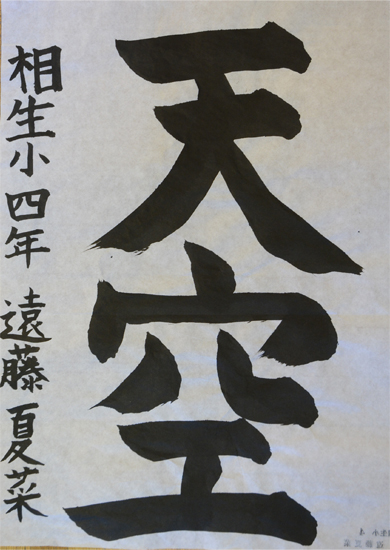 天空
相生小四年 遠藤夏菜